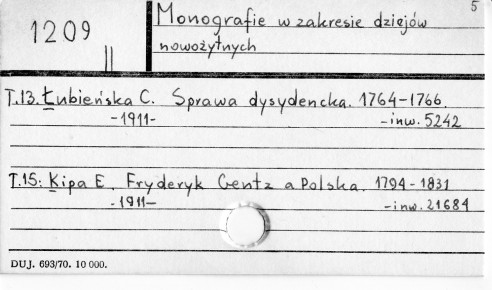 5
1209
II
Monografie w zakresie dziejów
nowożytnych
T.13. Łubieńska C. Sprawa dysydencka. 1764-1766.
-1911- -inw. 5242
T.15: Kipa E. Fryderyk Gentz a Polska. 1794-1831
-1911- -inw. 21684
DUJ. 693/70. 10 000.